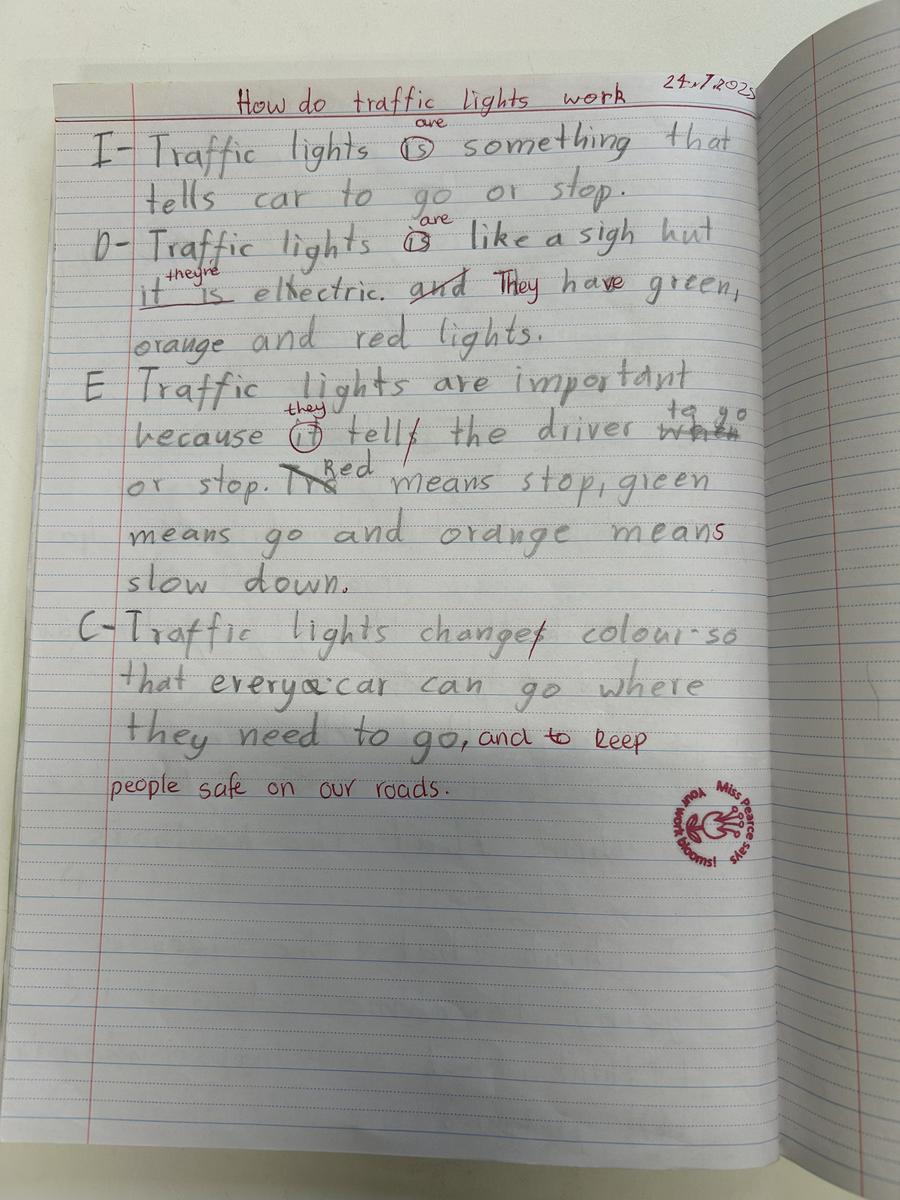 How do traffic lights work 24.7.2025
are
I- Traffic lights is something that
tells car to go or stop.
are
D- Traffic lights is like a sigh but
they're
it is electric. and They have green,
orange and red lights.
E Traffic lights are important
they to go
because it tells the driver when
Red
or stop. means stop, green
means go and orange means
slow down.
C- Traffic lights changes colour so
that every car can go where
they need to go, and to keep
people safe on our roads.
Miss Pearce says
Your work blooms!